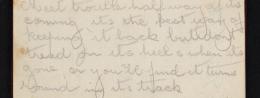 Meet trouble half way of its
coming its the best way of
keeping it back but dont
tread on its heels when its
gone or you'll find it turns
round in its track